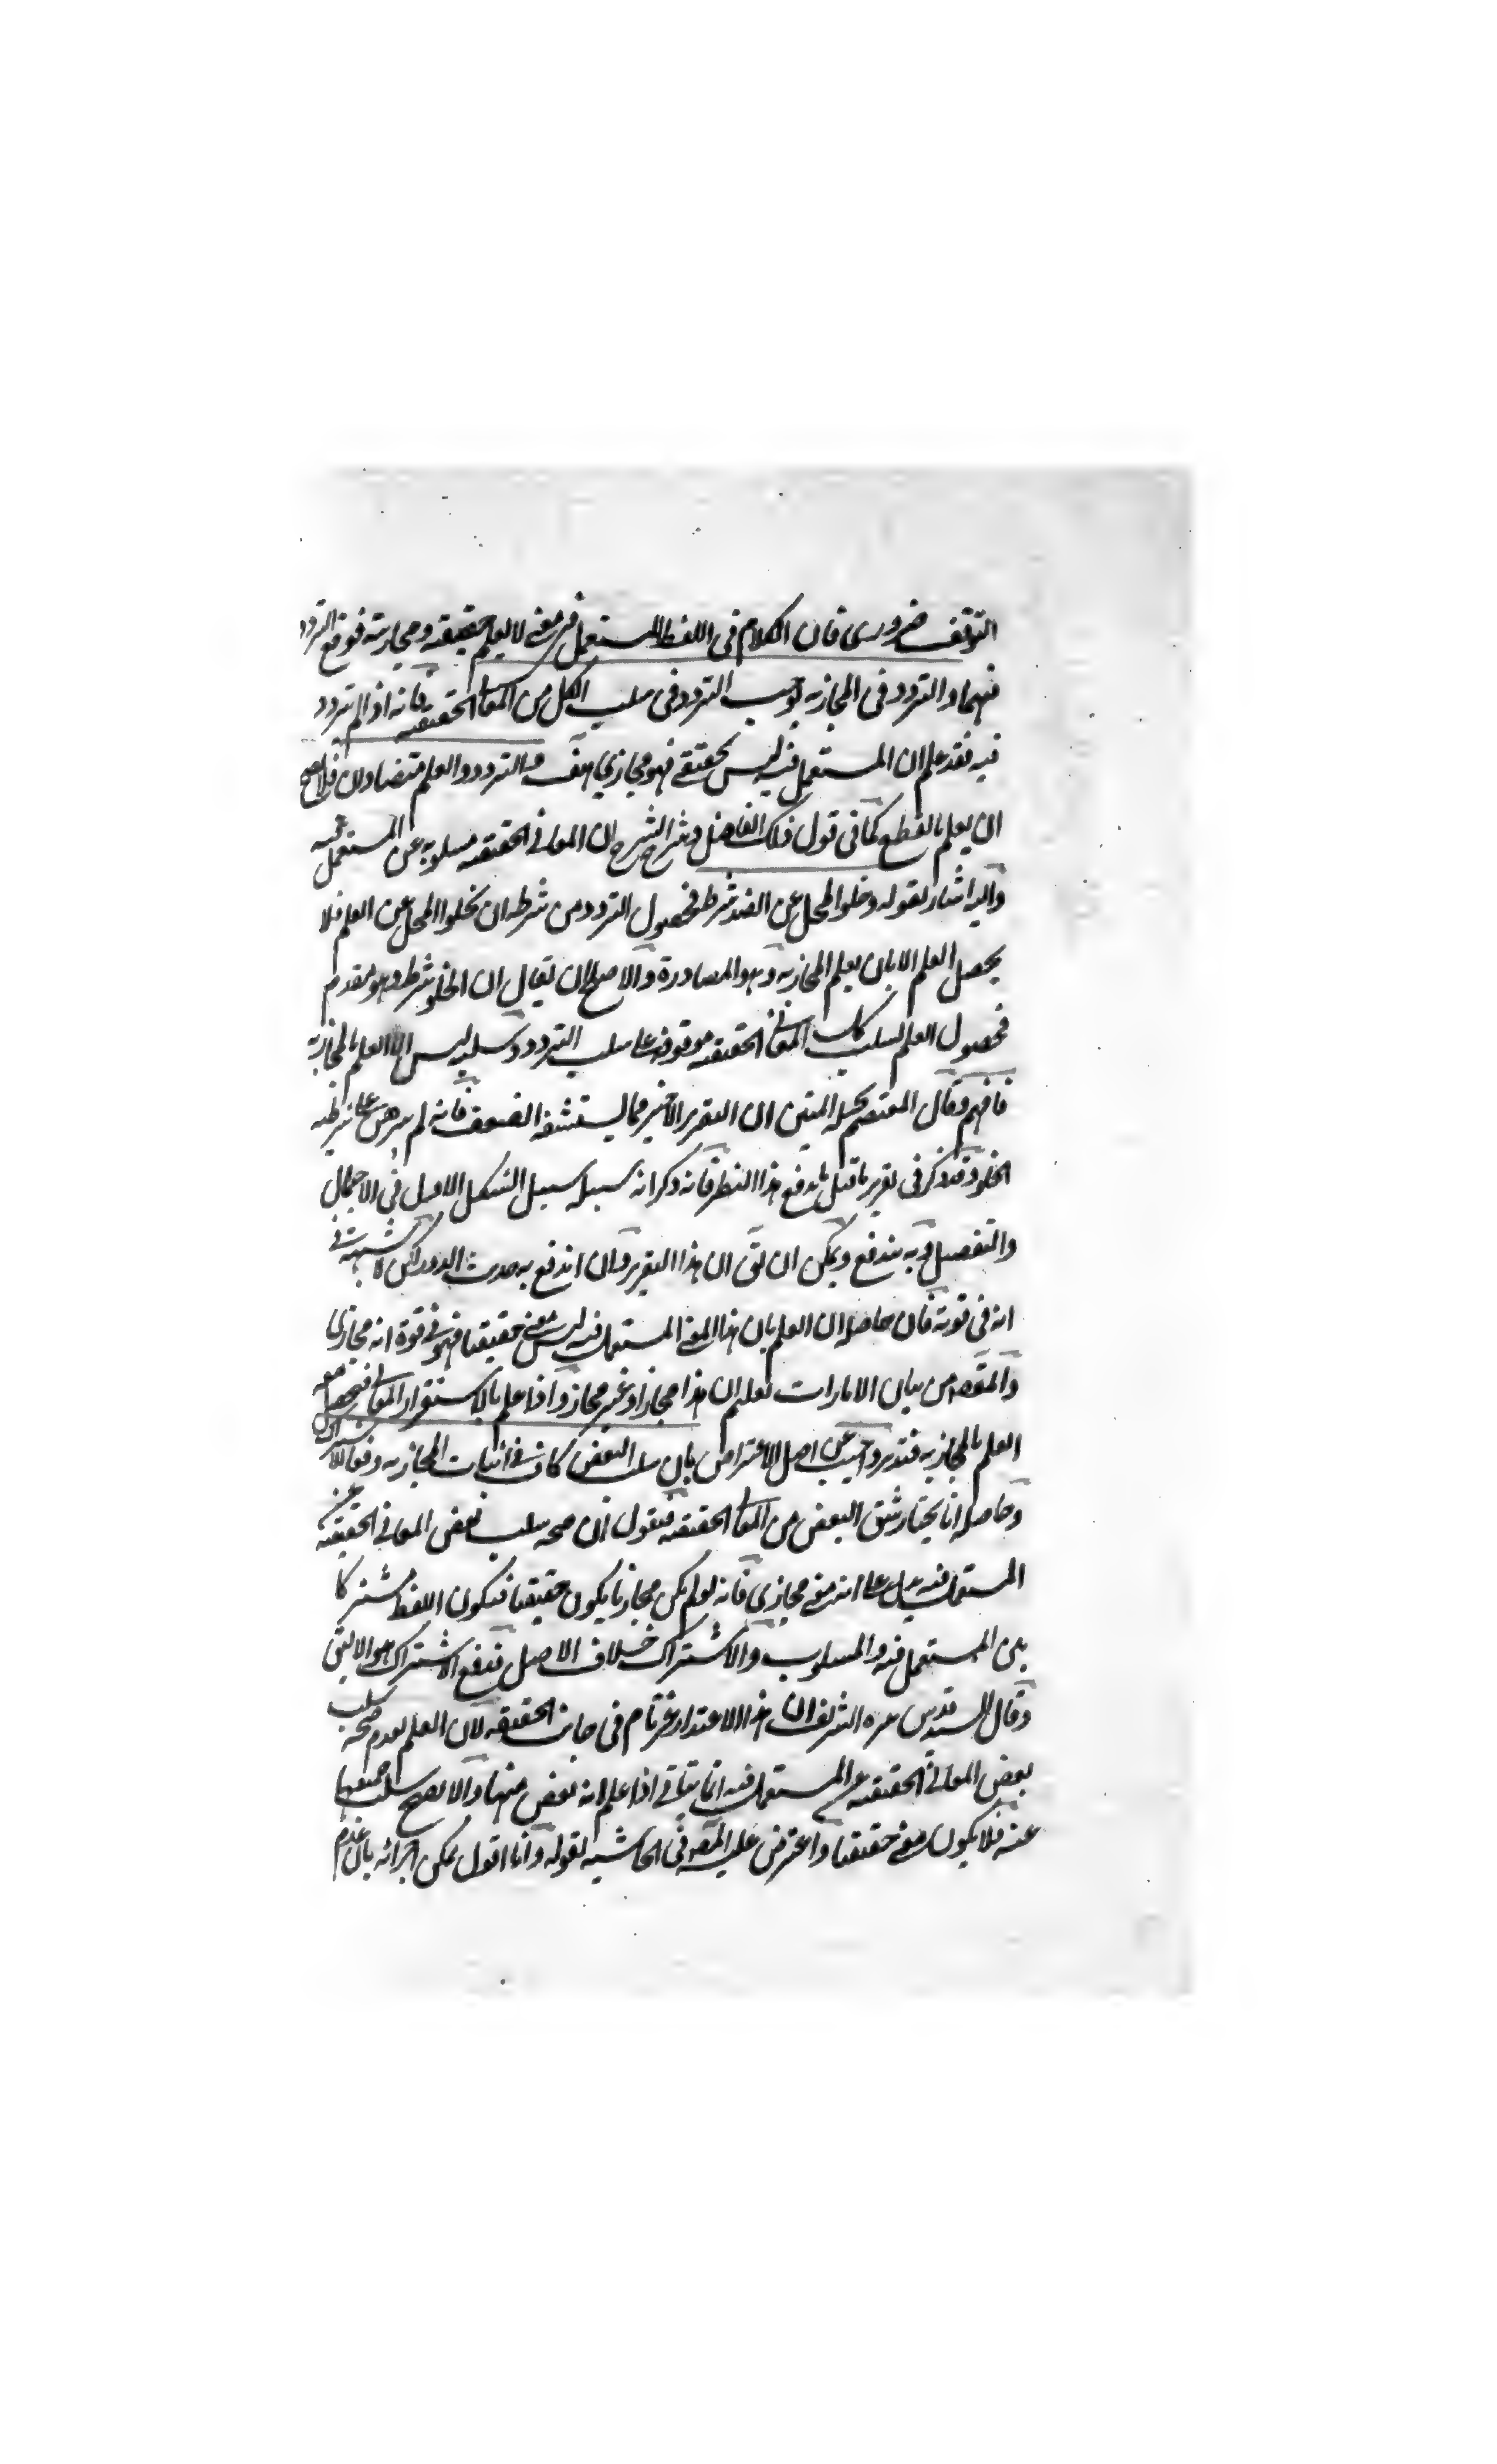 التوقف ضروري فان الكلام في اللفظ المستعمل في معنى لا يعلم حقيقته ومجازيته فوقع التردد
فيهما والتردد في المجازية يوجب التردد في سلب الكل من المعاني الحقيقية فانه اذ لم يتردد
فيه فقد علم ان المستعمل فيه ليس بحقيقي فهو مجازي هف والتردد والعلم متضادان فلا يصح
ان يعلم بالقطع كما في قول ذلك الفاضل وشرح الشرح ان المعاني الحقيقية مسلوبة عن المستعمل فيه
واليه اشار بقوله وخلو المحل عن الضد شرط فحصول التردد من شرطه ان يخلوا المحل عن العلم فلا
يحصل العلم الا بان يعلم المجازية وهو المصادرة والاصلح ان يقال ان الخلو شرط وهو مقدم
فحصول العلم بسلب كل المعاني الحقيقية موقوف على سلب التردد وسلبه ليس الا العلم بالمجازية
فافهم وقال المعتصم بحبله المتين ان التقرير الاخير مما يستشفه الضعف فانه لم يبرهن على شرطية
الخلو وقد ذكر في تقرير ما قيل ما يدفع هذا النظر فانه ذكر انه سبيله سبيل الشكل الاول في الاجمال
والتفصيل وبه يندفع ويمكن ان يق ان هذا التقرير وان اندفع به حديث الدور لكن لا شبهة في
انه في قوته فان حاصله ان العلم بان هذا المعنى المستعمل فيه ليس معنى حقيقيا فهو في قوة انه مجازي
والمقصد من بيان الامارات لعلم ان هذا مجاز او غير مجاز واذا علم بالاستقراء المعاني فيحصل معه
العلم بالمجازية فتدبر واجيب عن اصل الاعتراض بان سلب البعض كاف في اثبات المجازية دفعا للاشتراك
وحاصله انا نختار شق البعض من المعاني الحقيقية فنقول ان صحة سلب بعض المعاني الحقيقية عن
المستعمل فيه يدل على انه معنى مجازي فانه لو لم يكن مجازيا يكون حقيقيا فيكون اللفظ مشتركا
بين المستعمل فيه والمسلوب والاشتراك خلاف الاصل فدفع الاشتراك هو الاليق
وقال السيد قدس سره الشريف ان هذا الاعتذار غير تام في جانب الحقيقة لان العلم بعدم صحة سلب
بعض المعاني الحقيقية عن المستعمل فيه انما يتاتى اذا علم انه بعض منها والا يصح سلب جميعها
عنه فلا يكون معنى حقيقيا واعترض عليه المصـ في الحاشية بقوله وانا اقول يمكن اجرائه بان عدم